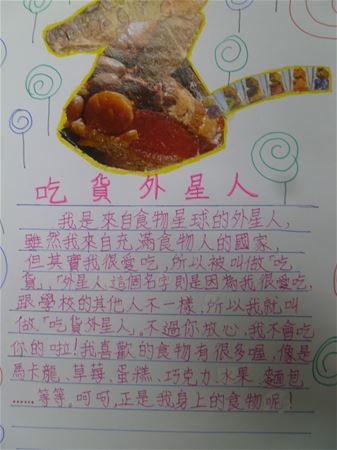 吃貨外星人
我是來自食物星球的外星人,
雖然我來自充滿食物人的國家,
但其實我很愛吃,所以被叫做「吃
貨」,「外星人」這個名字則是因為我很愛吃,
跟學校的其他人不一樣,所以我就叫
做「吃貨外星人」,不過你放心,我不會吃
你的啦!我喜歡的食物有很多喔,像是
馬卡龍、草莓、蛋糕、巧克力、水果、麵包
……等等。呵呵,正是我身上的食物呢!